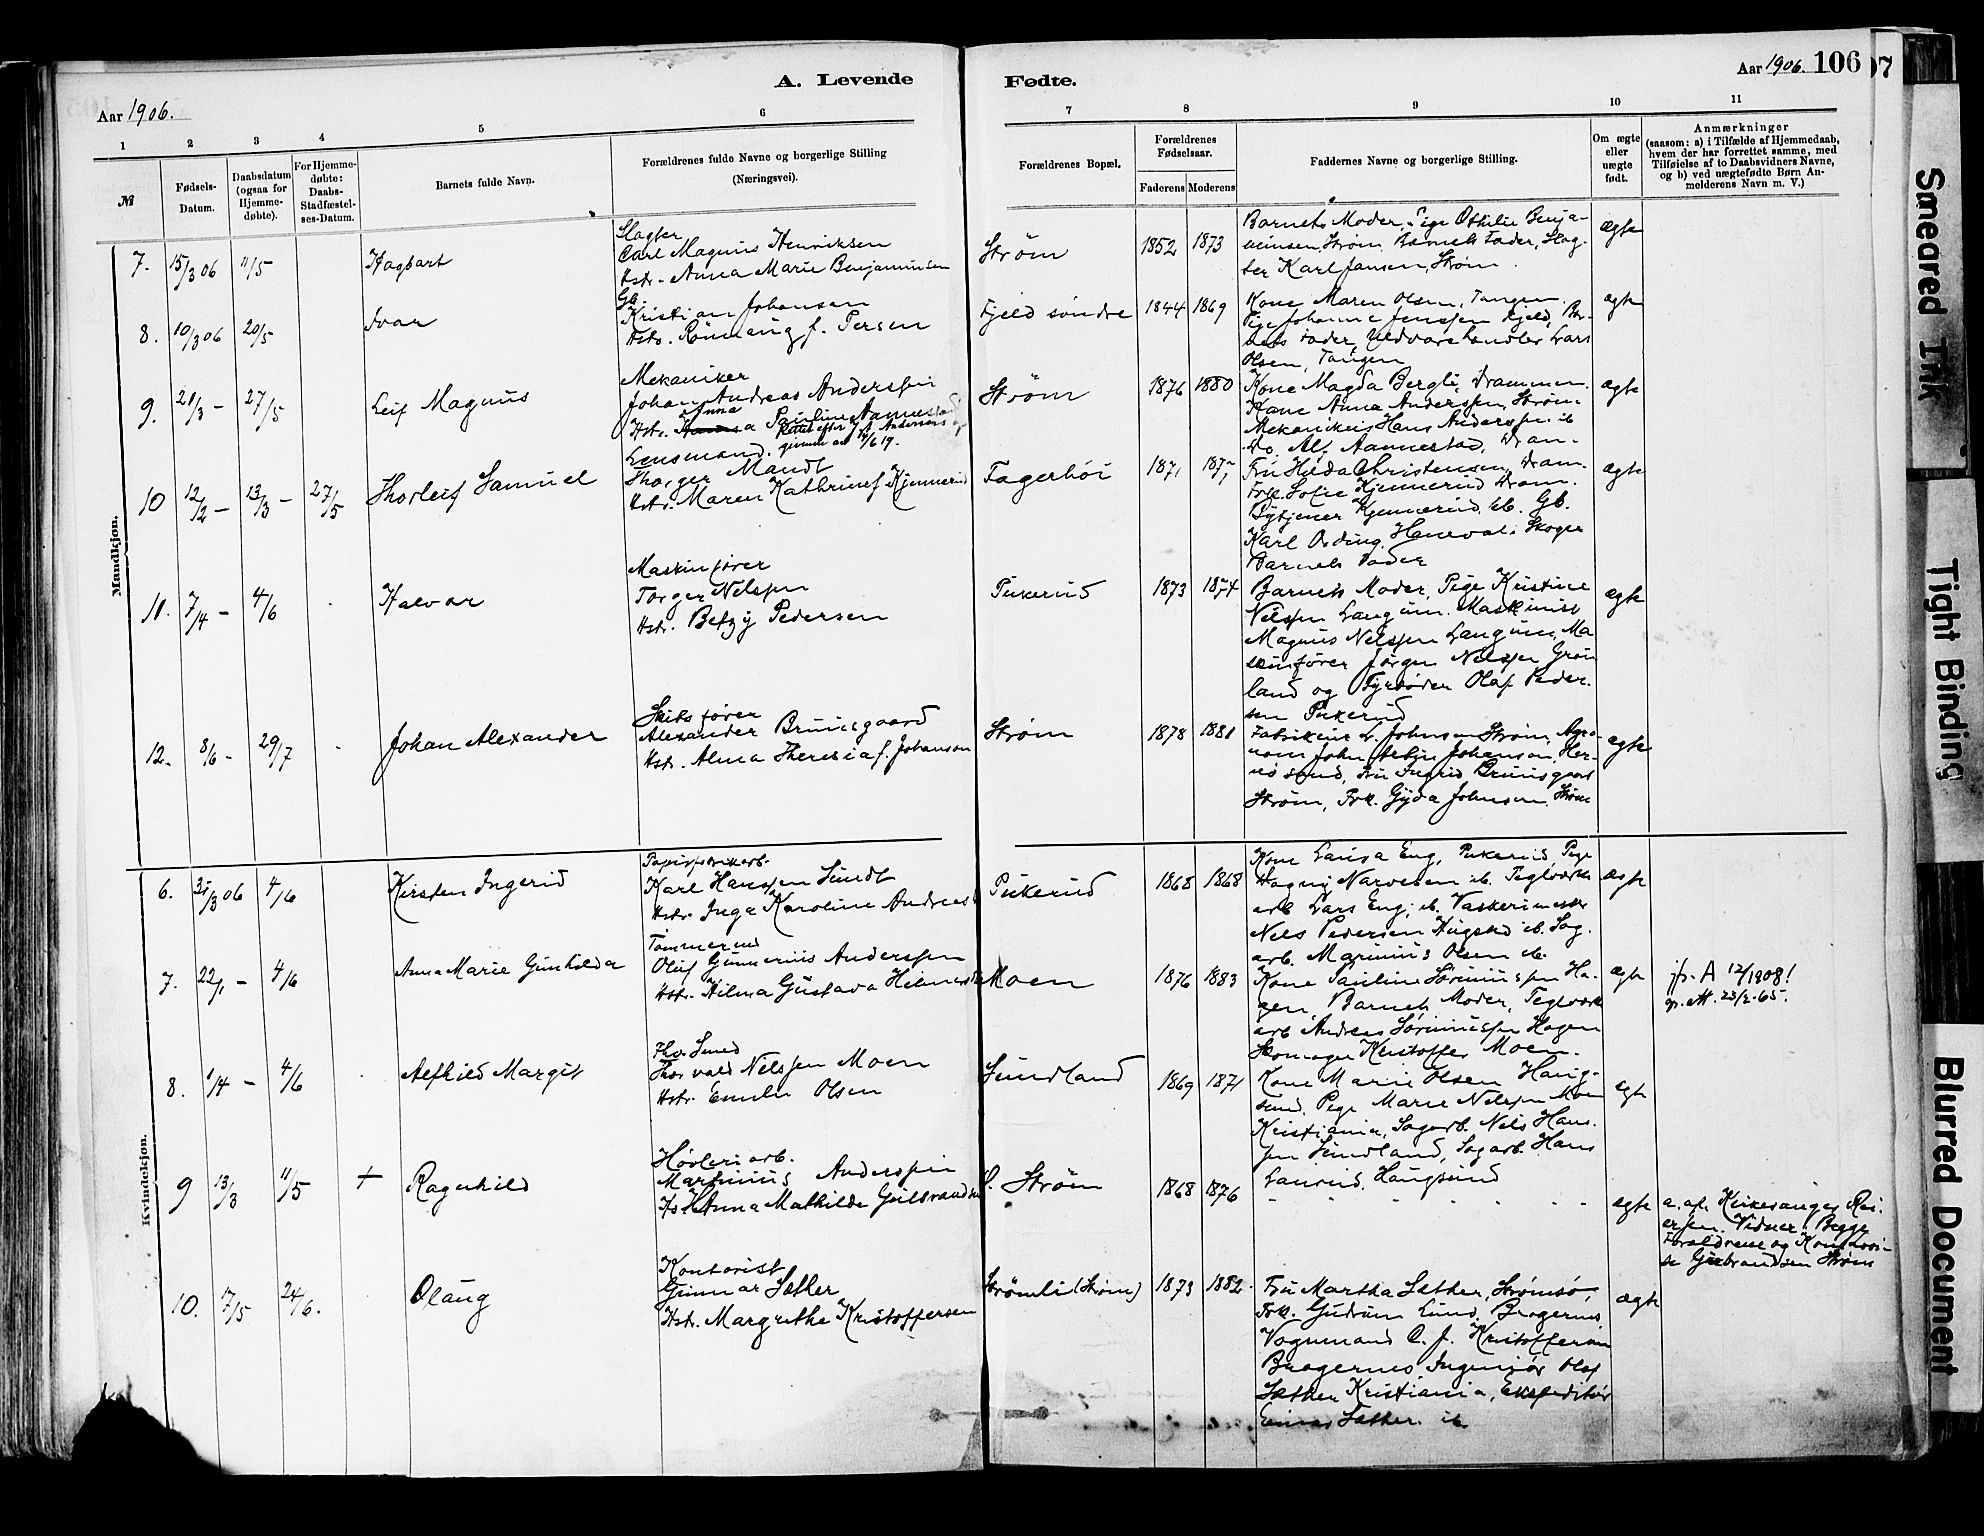 A. Levende
Fødte.
Aar 1906. 106
07
Aar 1906.
1 2 3 4 5 6 7 8 9 10 11
№
Fødsels-
Datum.
Daabsdatum
(ogsaa for
Hjemme-
døbte).
For Hjemme-
døbte:
Daabs-
Stadfæstel-
ses-Datum.
Barnets fulde Navn.
Forældrenes fulde Navne og borgerlige Stilling
(Næringsvei).
Forældrenes Bopæl.
Forældrenes
Fødselsaar.
Faderens Moderens
Faddernes Navne og borgerlige Stilling.
Om ægte
eller
uægte
født.
Anmærkninger
(saasom: a) i Tilfælde af Hjemmedaab,
hvem der har forrettet samme, med
Tilføielse af to Daabsvidners Navne,
og b) ved uægtefødte Børn An-
melderens Navn m. V.)
Mandkjøn.
7. 15/3 06 11/5 Hagbart
Slagter
Carl Magnus Henriksen
Hstr. Anna Marie Benjaminsen
Strøm 1852 1873
Barnets Moder, Pige Othilie Benja-
minsen, Strøm, Barnets Fader, Slag-
ter Karl Jansen, Strøm.
ægte
8. 10/3 06 20/5 Ivar
Gb.
Kristian Johansen
Hstr. Rønnaug f. Persen
Fjeld søndre 1844 1869
Kone Maren Olsen, Tangen.
Pige Johanne Jenssen Fjeld, Bar-
nets Fader, Uldvarehandler Lars
Olsen, Tangen
ægte
9. 21/3 – 27/5 Leif Magnus
Mekaniker
Johan Andreas Anderssen
Anna
Hstr. Pauline Aannestad
Strøm 1876 1880
Kone Magda Bergli, Drammen.
Kone Anna Anderssen, Strøm.
Mekanikus Hans Anderssen ib
Do. Alf Aannestad, Dram-
ægte
10 12/2 – 13/3 – 27/5 Thorleif Samuel
Lensmand.
Thorger Mandt
Hstr. Maren Kathrine f. Kjennerud
Fagerhøi 1871
Fru Hilda Christensen, Dram.
Frk. Sofie Kjennerud Dram.
Bytjener Kjennerud, ib. Gb.
Karl Ording, Haneval i Skoger
Barnets Fader
ægte
11. 7/4 – 4/6 Halvor
Maskinfører
Torger Nilssen
Hstr. Betzy Pedersen
Pukerud 1873 1874
Barnets Moder, Pige Kristine
Nilssen Langum. Maskinist
Magnus Nilssen Langum, Ma
skinfører Jørgen Nilssen Grøn
land og Fyrbøder Olaf Peder-
sen Pukerud
ægte
12. 8/6 – 29/7 Johan Alexander
Skibsfører
Alexander Bruusgaard
Hstr. Alma Theresia f. Johansen
Strøm 1878 1881
Johnsen Strøm, Agro-
nom John Johansen, Her-
nøsand, Fru Ingrid Bruusgaard
Strøm, Frk. Gyda Johnsen, Strøm
ægte
Kvindekjøn.
6. 31/3 06 4/6 Kirsten Ingerid
Papirfabrikarb.
Karl Hanssen Sundt
Hstr. Inga Karoline Andreas
Pukerud 1868 1868
Kone Lovisa Eng, Pukerud, Pige
Dagny Narvesen ib. Teglværks
arb Lars Eng, ib. Vaskerimester
Nils Pedersen ib. Sag.
arb. Marinius Olsen ib.
ægte
7. 22/1 – 4/6 Anna Marie Gunhilda
Tømmermd
Oluf Gunnerius Anderssen
Hstr. Hilma Gustava
Moen 1876 1883
Kone Pauline Søreniussen Ha-
gen, Barnets Moder, Teglværk
arb Andreas Søreniussen Hagen
Skomager Kristoffer Moen.
ægte
jfr. A 12/1908!
gr. att. 23/2-65.
8. 1/4 – 4/6 Alfhild Margit
Smed
Thorvald Nilssen Moen
Hstr. Emilie Olsen
Sundland 1869 1871
Kone Marie Olsen Haug-
sund, Pige Marie Nilssen Moen
Kristiania, Sagarb. Nils Hans-
sen Sundland, Sagarb. Hans
Laurits, Haugsund
ægte
9 13/3 11/5 + Ragnhild
Høvleriarb.
Martinius Anderssen
Anna Mathilde Gulbrandsen
S. Strøm 1868 1876
ægte
a. af Kirkesanger Rei-
ersen. Vidner: Begge
Forældrene og
Gulbrandsen Strøm
10. 17/5 24/6. Olaug
Kontorist
Gunnar Sæther
Hstr. Margrethe Kristoffersen
Strømli (Strøm) 1873 1882
Fru Martha Sæther, Strømsø,
Frk. Gudrun Lund, Bragernes
Vognmand C. J. Kristoffersen
Bragernes, Ingeniør Olaf
Sæther Kristiania, Ekspeditør
Einar Sæther. ib.
ægte
Smeared Ink
Tight Binding
Blurred Document